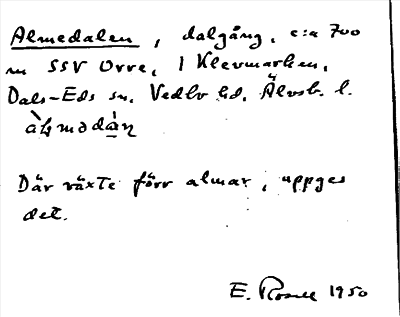 Almedalen, dalgång, c:a 700
m SSV Orre, i Klevmarken,
Dals-Eds sn, Vedbo hd, Älvsb. l.
Där växte förr almar, uppges
det.
E. Rosell 1950